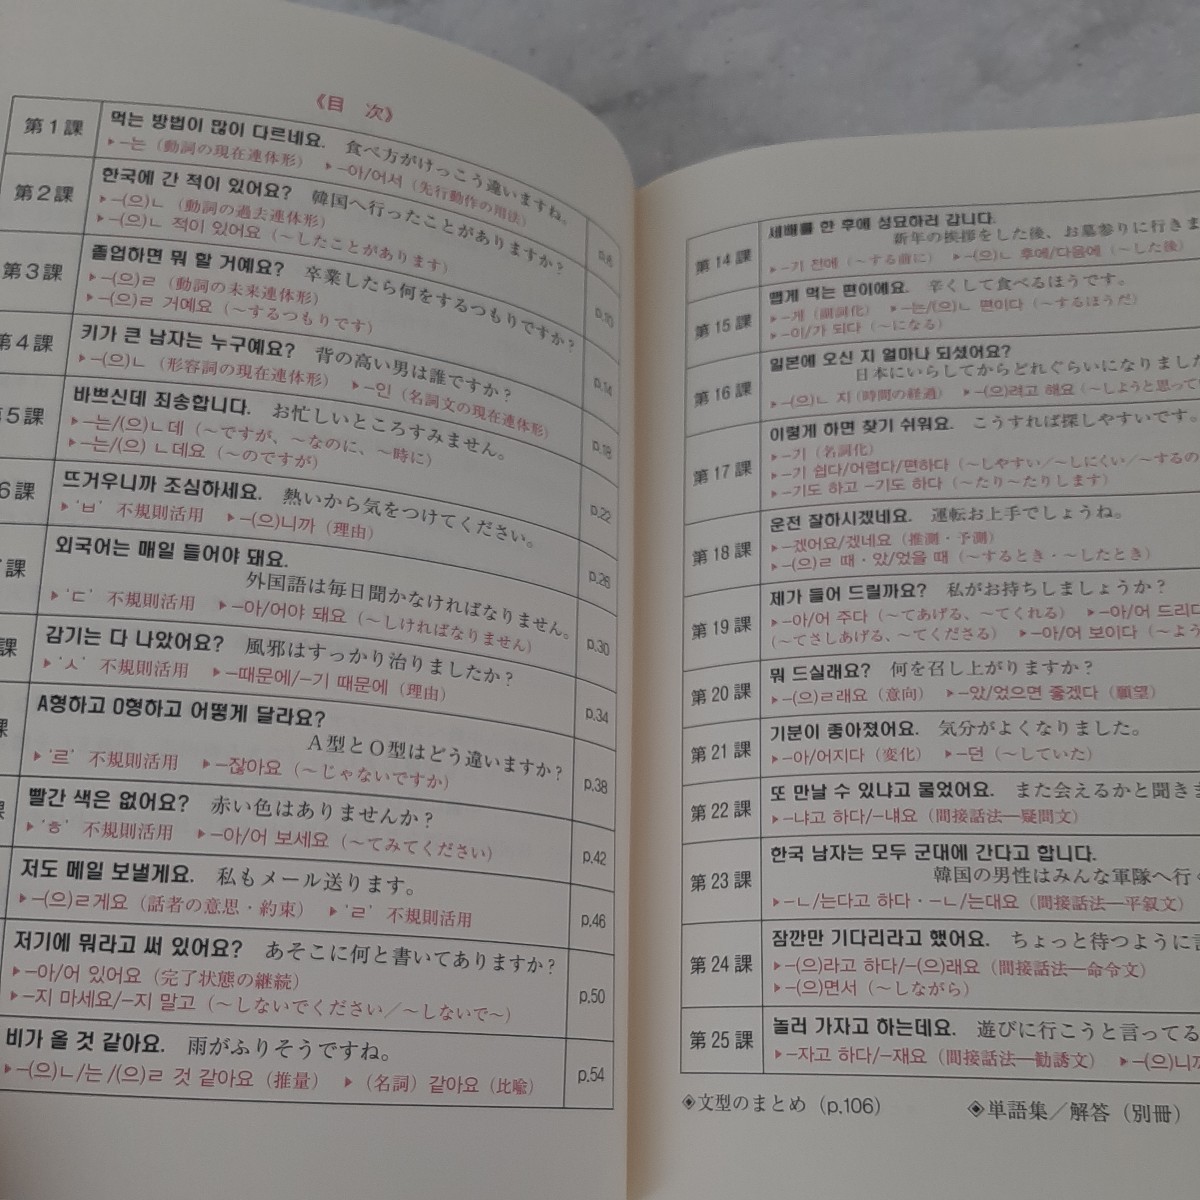 《目 次》
第1課
먹는 방법이 많이 다르네요. 食べ方がけっこう違いますね。
▸-는（動詞の現在連体形） ▸-아/어서（先行動作の用法）
p.6
第2課
한국에 간 적이 있어요? 韓国へ行ったことがありますか？
▸-(으)ㄴ（動詞の過去連体形）
▸-(으)ㄴ 적이 있어요（～したことがあります）
p.10
第3課
졸업하면 뭐 할 거예요? 卒業したら何をするつもりですか？
▸-(으)ㄹ（動詞の未来連体形）
▸-(으)ㄹ 거예요（～するつもりです）
p.14
第4課
키가 큰 남자는 누구예요? 背の高い男は誰ですか？
▸-(으)ㄴ（形容詞の現在連体形） ▸-인（名詞文の現在連体形）
p.18
5課
바쁘신데 죄송합니다. お忙しいところすみません。
▸-는/(으)ㄴ데（～ですが、～なのに、～時に）
▸-는/(으)ㄴ데요（～のですが）
p.22
6課
뜨거우니까 조심하세요. 熱いから気をつけてください。
▸'ㅂ' 不規則活用 ▸-(으)니까（理由）
p.26
課
외국어는 매일 들어야 돼요.
外国語は毎日聞かなければなりません。
▸'ㄷ' 不規則活用 ▸-아/어야 돼요（～しければなりません）
p.30
課
감기는 다 나았어요? 風邪はすっかり治りましたか？
▸'ㅅ' 不規則活用 ▸-때문에/-기 때문에（理由）
p.34
課
A형하고 O형하고 어떻게 달라요?
A型とO型はどう違いますか？
▸'르' 不規則活用 ▸-잖아요（～じゃないですか）
p.38
課
빨간 색은 없어요? 赤い色はありませんか？
▸'ㅎ' 不規則活用 ▸-아/어 보세요（～てみてください）
p.42
저도 메일 보낼게요. 私もメール送ります。
▸-(으)ㄹ게요（話者の意思・約束） ▸'ㄹ' 不規則活用
p.46
저기에 뭐라고 써 있어요? あそこに何と書いてありますか？
▸-아/어 있어요（完了状態の継続）
▸-지 마세요/-지 말고（～しないでください／～しないで～）
p.50
비가 올 것 같아요. 雨がふりそうですね。
▸-(으)ㄴ/는/(으)ㄹ 것 같아요（推量） ▸（名詞）같아요（比喩）
p.54
第14課
세배를 한 후에 성묘하러 갑니다.
新年の挨拶をした後、お墓参りに行きま
▸-기 전에（～する前に） ▸-(으)ㄴ 후에/다음에（～した後）
第15課
맵게 먹는 편이에요. 辛くして食べるほうです。
▸-게（副詞化） ▸-는/(으)ㄴ 편이다（～するほうだ）
▸-이/가 되다（～になる）
第16課
일본에 오신 지 얼마나 되셨어요?
日本にいらしてからどれぐらいになりました
▸-(으)ㄴ 지（時間の経過） ▸-(으)려고 해요（～しようと思って
第17課
이렇게 하면 찾기 쉬워요. こうすれば探しやすいです。
▸-기（名詞化）
▸-기 쉽다/어렵다/편하다（～しやすい／～しにくい／～するの
▸-기도 하고 -기도 하다（～たり～たりします）
第18課
운전 잘하시겠네요. 運転お上手でしょうね。
▸-겠어요/겠네요（推測・予測）
▸-(으)ㄹ 때・았/었을 때（～するとき・～したとき）
第19課
제가 들어 드릴까요? 私がお持ちしましょうか？
▸-아/어 주다（～てあげる、～てくれる） ▸-아/어 드리다
（～てさしあげる、～てくださる） ▸-아/어 보이다（～よう
第20課
뭐 드실래요? 何を召し上がりますか？
▸-(으)ㄹ래요（意向） ▸-았/었으면 좋겠다（願望）
第21課
기분이 좋아졌어요. 気分がよくなりました。
▸-아/어지다（変化） ▸-던（～していた）
第22課
또 만날 수 있냐고 물었어요. また会えるかと聞きま
▸-냐고 하다/-냬요（間接話法―疑問文）
第23課
한국 남자는 모두 군대에 간다고 합니다.
韓国の男性はみんな軍隊へ行く
▸-ㄴ/는다고 하다・-ㄴ/는대요（間接話法―平叙文）
第24課
잠깐만 기다리라고 했어요. ちょっと待つように言
▸-(으)라고 하다/-(으)래요（間接話法―命令文）
▸-(으)면서（～しながら）
第25課
놀러 가자고 하는데요. 遊びに行こうと言ってる
▸-자고 하다/-재요（間接話法―勧誘文） ▸-(으)니까
◈文型のまとめ（p.106） ◈単語集／解答（別冊）